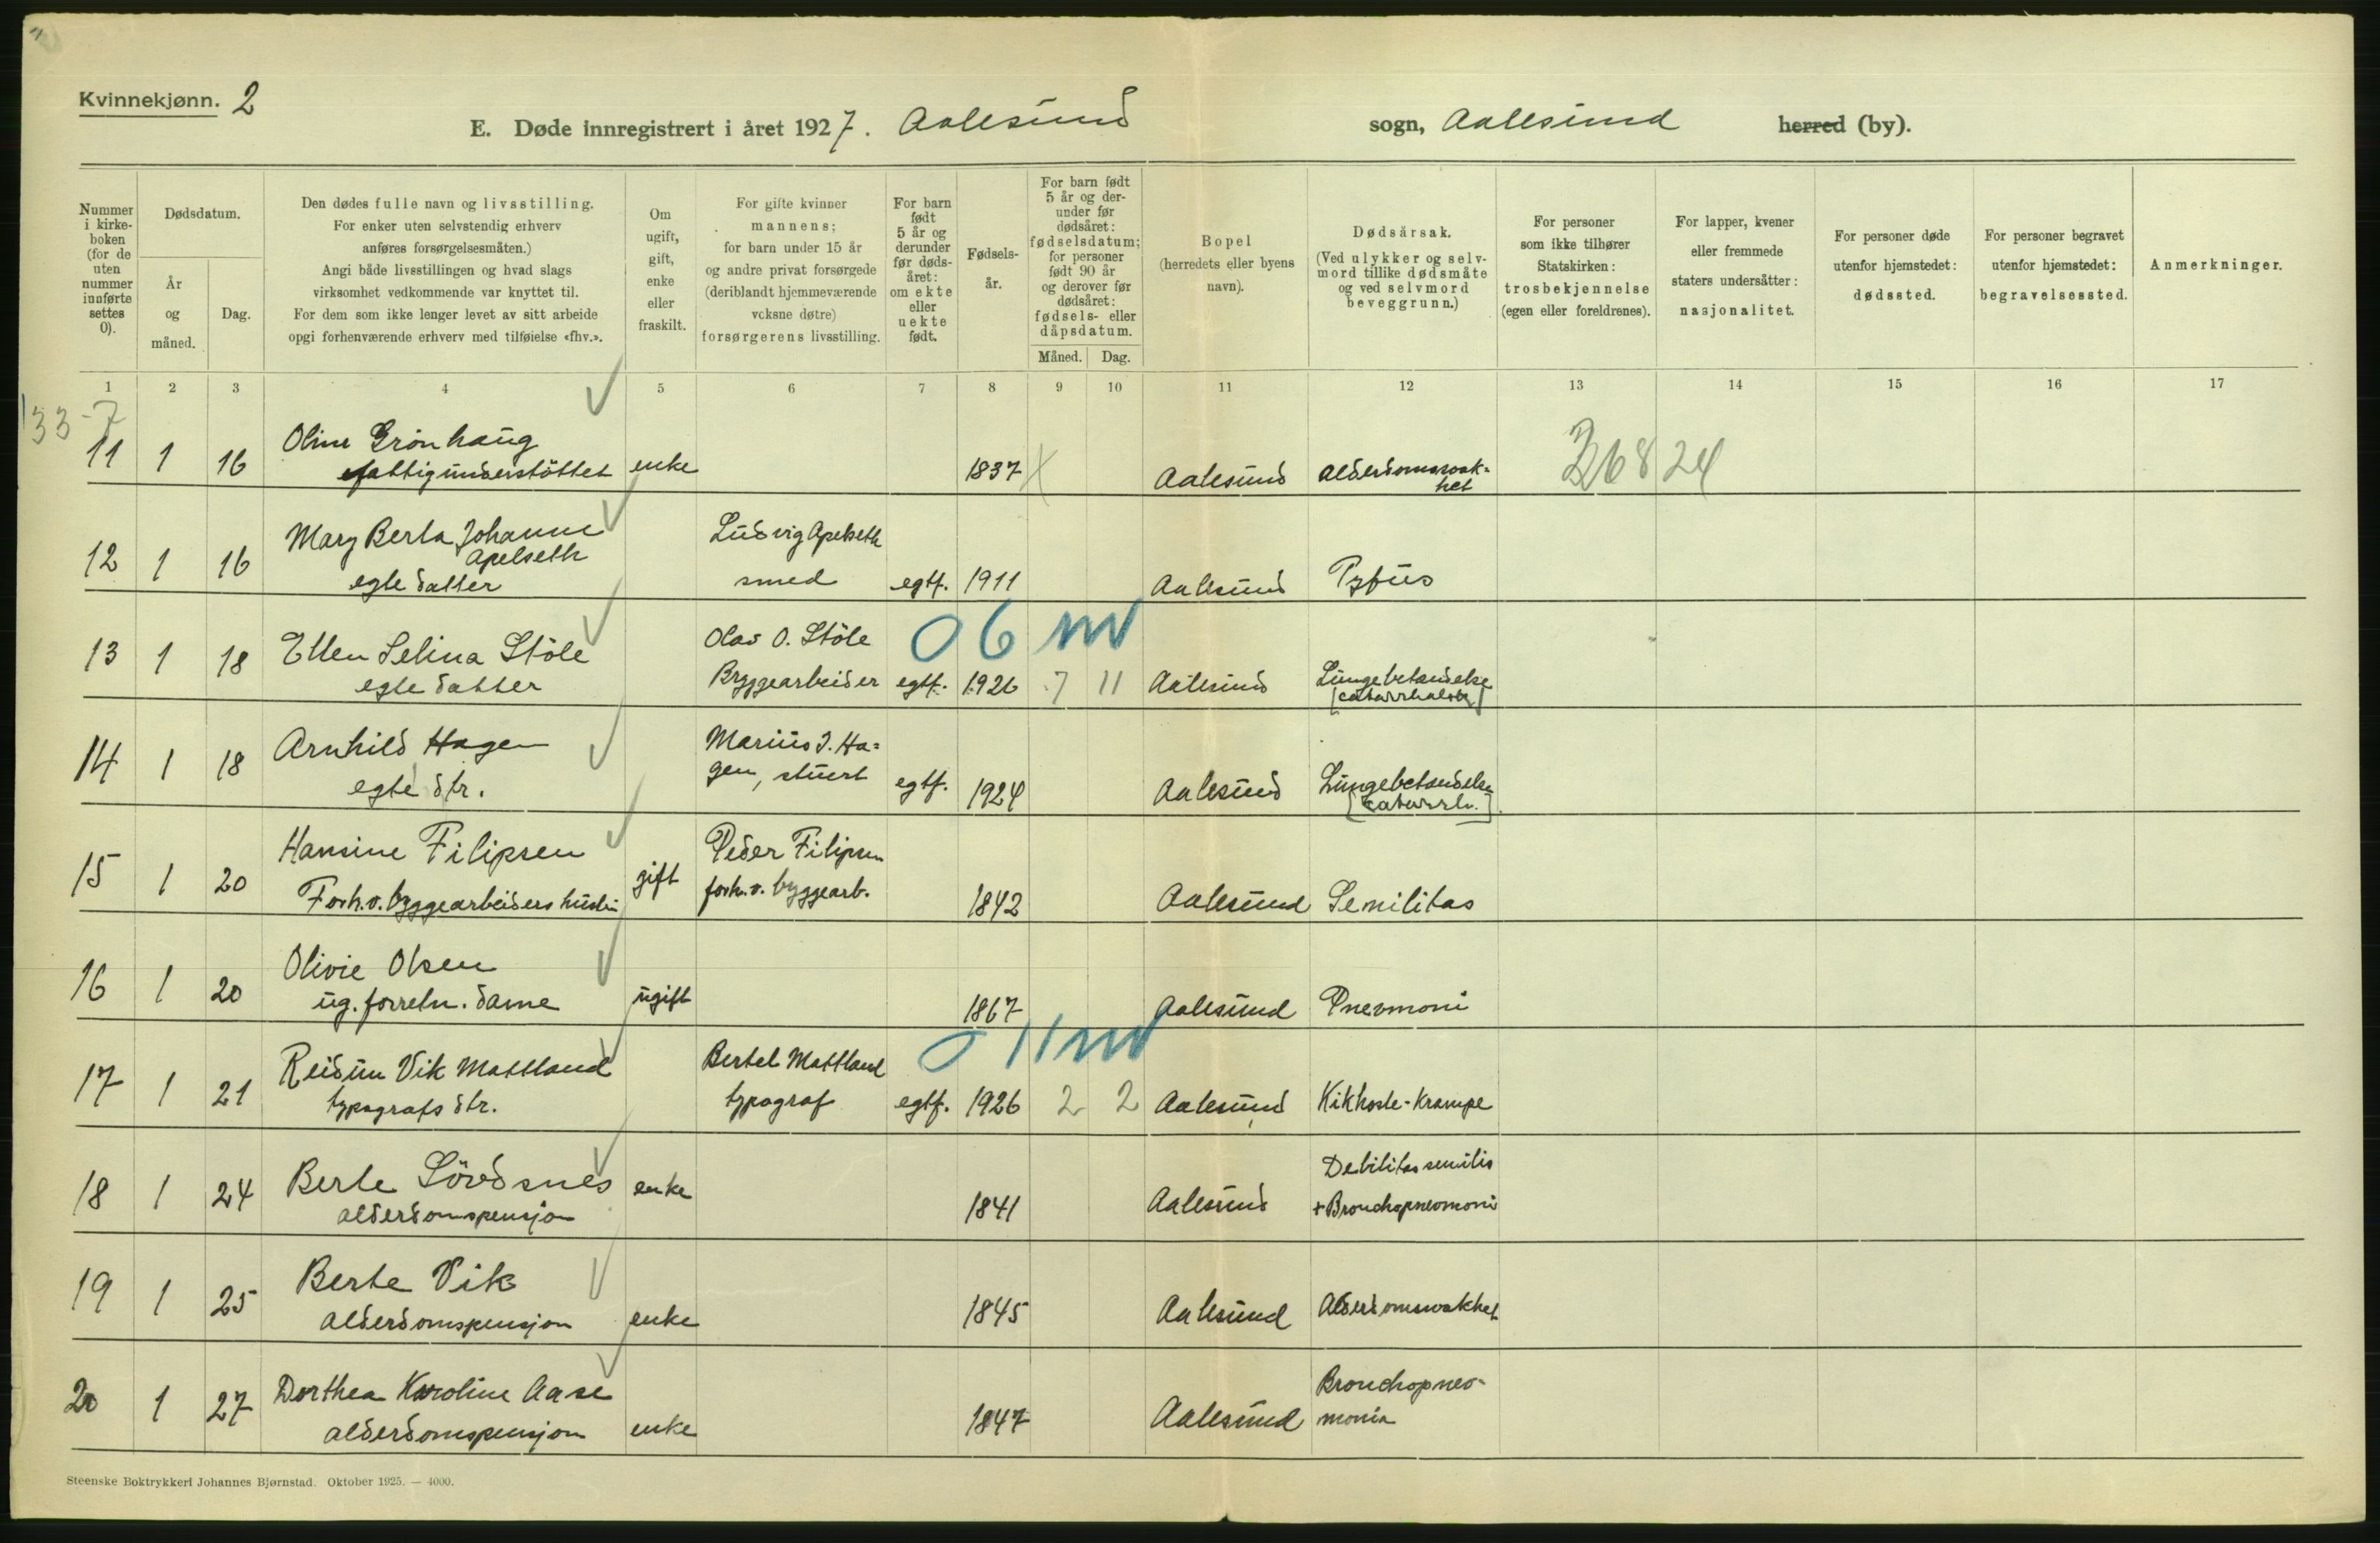 Kvinnekjønn. 2
E. Døde innregistrert i året 1927. Aalesund sogn, Aalesund herred (by).
Nummer i kirke-boken (for de uten nummer innførte settes 0).
Dødsdatum.
År og måned.
Dag.
Den dødes fulle navn og livsstilling.
For enker uten selvstendig erhverv
anføres forsørgelsesmåten.)
Angi både livsstillingen og hvad slags
virksomhet vedkommende var knyttet til.
For dem som ikke lenger levet av sitt arbeide
opgi forhenværende erhverv med tilføielse «fhv.».
Om ugift, gift, enke eller fraskilt.
For gifte kvinner
mannens;
for barn under 15 år
og andre privat forsørgede
(deriblandt hjemmeværende
voksne døtre)
forsørgerens livsstilling.
For barn født 5 år og derunder før døds-året: om ekte eller uekte født.
Fødsels-år.
For barn født 5 år og der-under før dødsåret: fødselsdatum; for personer født 90 år og derover før dødsåret: fødsels- eller dåpsdatum.
Måned. Dag.
Bopel
(herredets eller byens
navn).
Dødsårsak.
(Ved ulykker og selv-
mord tillike dødsmåte
og ved selvmord
beveggrunn.)
For personer
som ikke tilhører
Statskirken:
trosbekjennelse
(egen eller foreldrenes).
For lapper, kvener
eller fremmede
staters undersåtter:
nasjonalitet.
For personer døde
utenfor hjemstedet:
dødssted.
For personer begravet
utenfor hjemstedet:
begravelsessted.
Anmerkninger.
1 2 3 4 5 6 7 8 9 10 11 12 13 14 15 16 17
133-7
11 1 16 Oline Grönhaug
fattigunderstöttet enke 1837 Aalesund alderdomssvak-
het
36824
12 1 16 Mary Berta Johanne
Apelseth
egte datter
Ludvig Apelseth
smed egtf. 1911 Aalesund Tyfus
13 1 18 Ellen Selina Stöle
egte datter
Olav O. Stöle
Bryggearbeider egtf. 1926 7 11 Aalesund Lungebetændelse
(catarrhalsk)
06 m
14 1 18 Arnhild Hagen
egte dtr.
Marius J. Ha-
gen, stuert egtf. 1924 Aalesund Lungebetændelse
[catarrh.]
15 1 20 Hansine Filipsen
Forh.v. byggearbeiders hustru gift
Peder Filipsen
forh.v. byggearb. 1842 Aalesund Senilitas
16 1 20 Olivie Olsen
ug. forretn. dame ugift 1867 Aalesund Pnevmoni
0 11 m
17 1 21 Reidun Vik Mattland
typografs dtr.
Bertel Mattland
typograf egtf. 1926 2 2 Aalesund Kikhoste-Krampe
18 1 24 Berte Sövdsnes enke
alderdomspensjon 1841 Aalesund Debilitas senilis
+ Bronchopnevmoni
19 1 25 Berte Vik
alderdomspensjon enke 1845 Aalesund Alderdomsvakhet
20 1 27 Dorthea Karoline Aase
alderdomspensjon enke 1847 Aalesund Bronchopnev-
monia
Steenske Boktrykkeri Johannes Bjørnstad. Oktober 1925. — 4000.